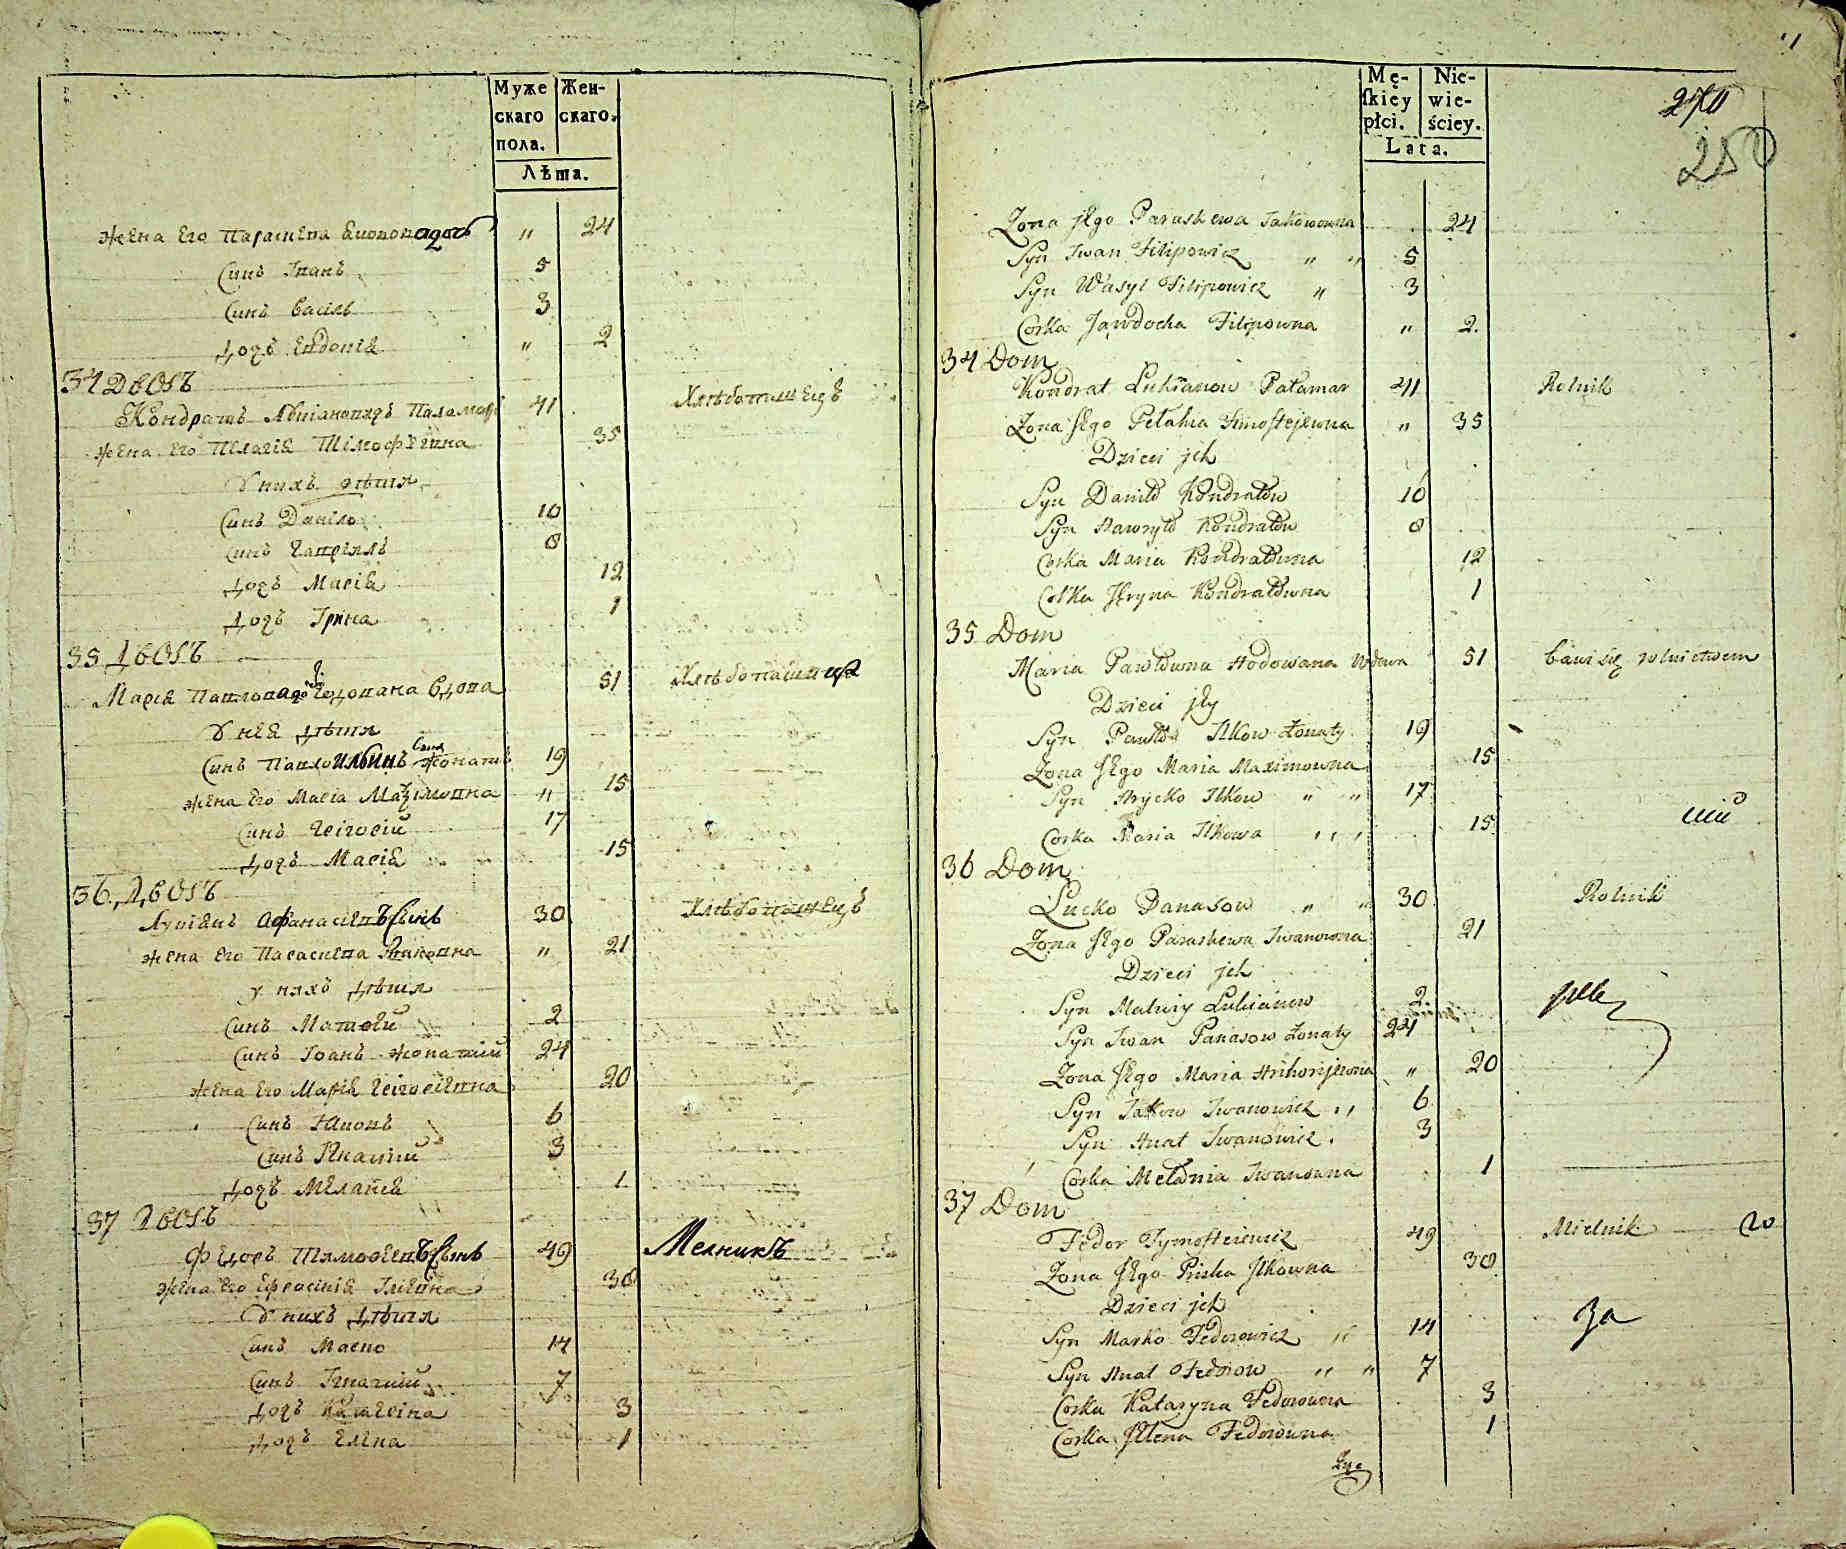 Муже Жен-
скаго скаго.
пола.
Лѣта.
жена его Параскева " 24
Синъ Іванъ 5
Синъ Васіль 3
дочъ Евдокія " 2
34 Дворъ
Кондратъ Паламарь 41 Хлѣбопашецъ
жена его Пелагія Тімофѣевна 35
У нихъ дѣти
Синъ Даніло 10
Синъ Гавріилъ 8
дочъ Марія 12
дочъ Ірина 1
35 Дворъ
Марія Павлова Годована вдова 51 Хлѣбопашица
У нея дѣти
Синъ Павло Ильинъ Синъ жонатъ 19
жена его Марія Маѯімовна " 15
Синъ Григорій 17
дочъ Марія 15
36 Дворъ
Лукіянъ Афанасіевъ Синъ 30 Хлѣбопашецъ
жена его Параскева Івановна " 21
у нихъ дѣти
Синъ Матвѣй 2
Синъ Іоанъ жонатій 24
жена его Марія Григоріевна 20
Синъ Іаковъ 6
Синъ Ігнатій 3
дочъ Меланія 1
37 Дворъ
Федоръ Тимофіевъ Синъ 49 Мелникъ
жена его Ефросинія Іліевна 38
У нихъ дѣти
Синъ Марко 14
Синъ Ігнатій 7
дочъ Катерина 3
дочъ Елена 1
Mę- Nie-
ſkiey wie-
płci. ściey.
Lata.
270
250
Żona jEgo Paraskewa Jakowowna 24
Syn Iwan Filipowicz " " 5
Syn Wasyl Filipowicz " 3
Corka Jawdocha Filipowna " 2.
34 Dom
Kondrat Lukianow Pałamar 41 Rolnik
Żona jEgo Pelahia Timoftejewna " 35
Dzieci jch
Syn Daniło Kondratow 10
Syn Hawryło Kondratow 8
Corka Maria Kondratowna 12
Corka Jryna Kondratowna 1
35 Dom
Maria Pawłowna Hodowana Wdowa 51 bawi się rolnictwem
Dzieci jEy
Syn Pawło Ilkow Żonaty 19
Żona jEgo Maria Maximowna 15
Syn Hrycko Ilkow " " 17
Corka Maria Ilkowa " " 15
36 Dom
Lucko Panasow " " 30 Rolnik
Żona jEgo Paraskewa Iwanowna 21
Dzieci jch
Syn Matwiy Lukianow 2.
Syn Iwan Panasow Żonaty 24
Żona jEgo Maria Hrihorijewna " 20
Syn Jakow Iwanowicz " 6
Syn Hnat Iwanowicz 3
Corka Mełania Iwanowna 1
37 Dom
Fedor Tymofteiewicz 49 Mielnik
Żona jEgo Priska Ilkowna 38
Dzieci jch
Syn Marko Fedorowicz " 14 За
Syn Hnat Fedorow " " 7
Corka Kataryna Fedorowna 3
Corka Jlena Fedorowna 1